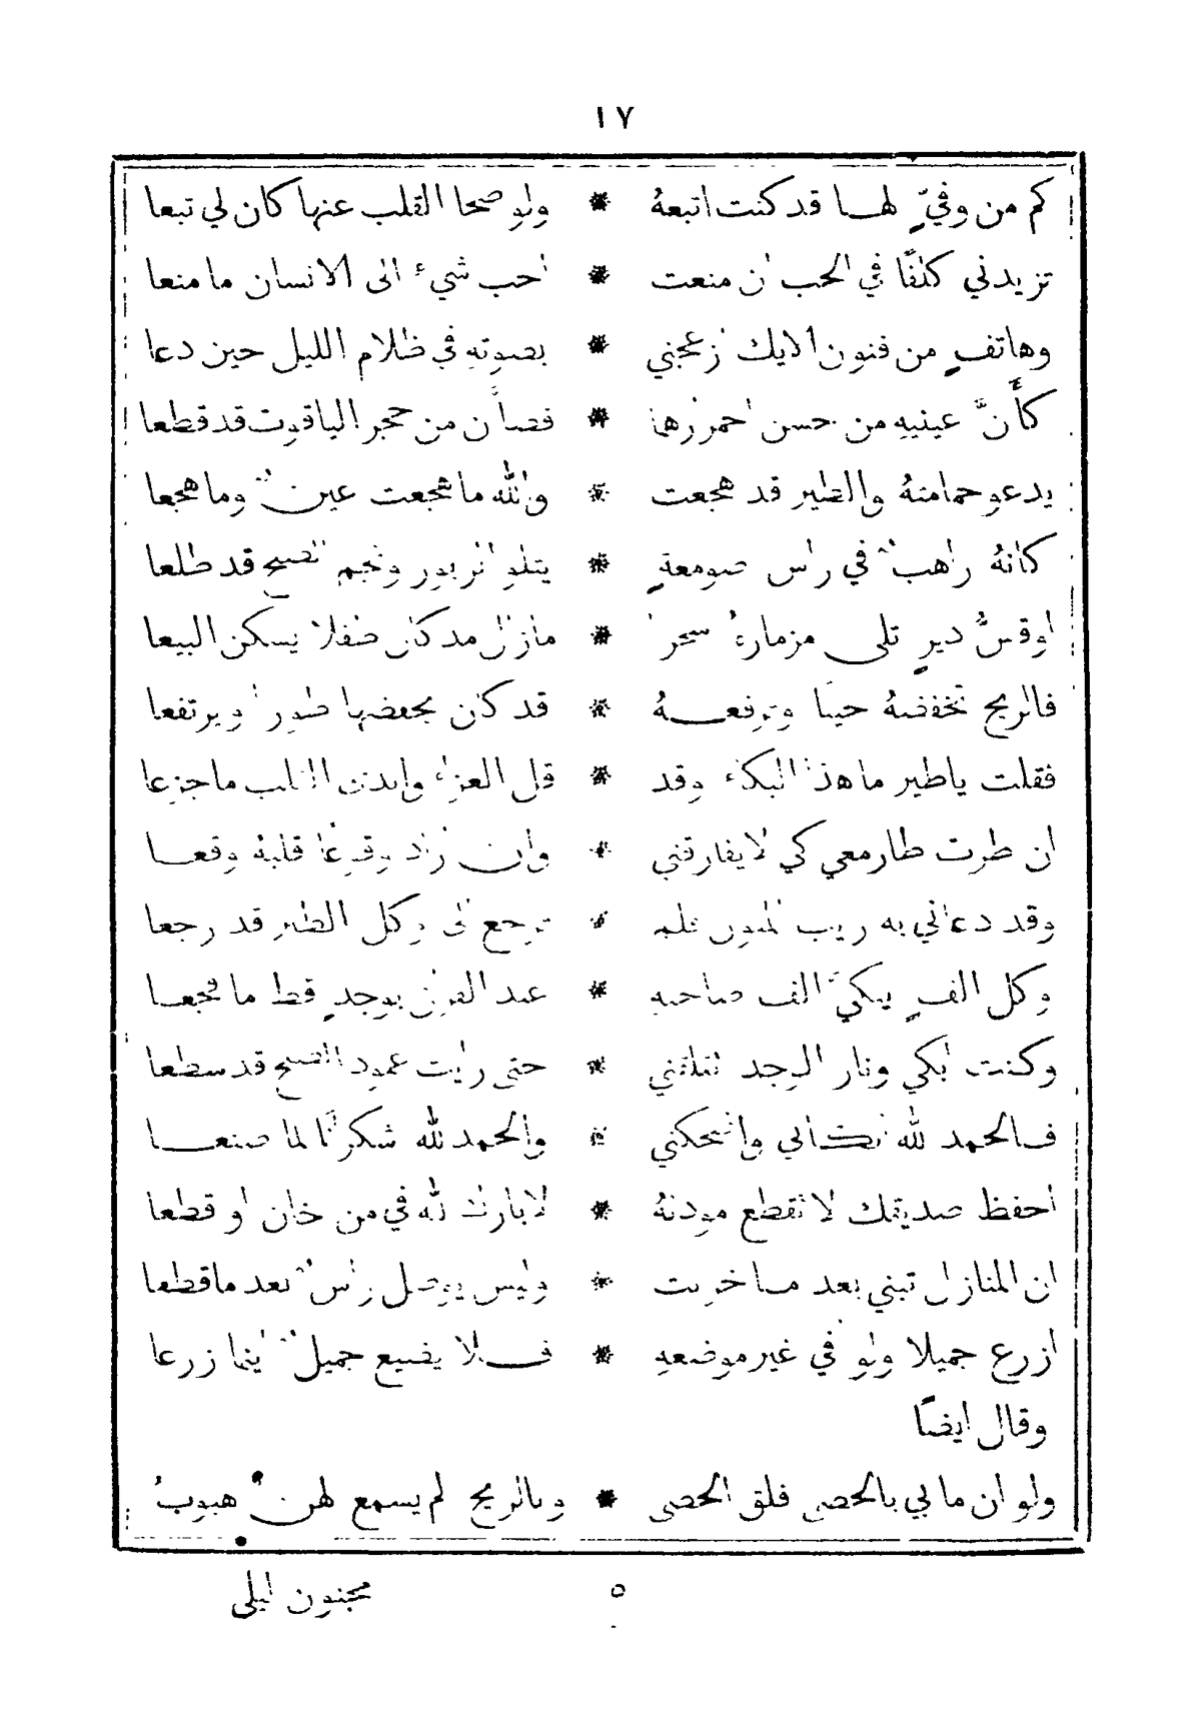 ١٧
كم من وفيٍّ لهــا قد كنت اتبعهُ * ولو صحا القلب عنها كان لي تبعا
تزيدني كلفًا في الحب ان منعت * احب شيء الى الانسان ما منعا
وهاتفٍ من فنون الايك ازعجني * بصوتهِ في ظلام الليل حين دعا
كأَنَّ عينيهِ من حسن احمرارهما * فصاَّن من حجر الياقوت قد قطعا
يدعو حمامتهُ والطير قد هجعت * والله ما هجعت عينٌ وما هجعا
كانهُ راهبٌ في راس صومعةٍ * يتلو الزبور ونجم الصبح قد طلعا
او قسُّ ديرٍ تلى مزمارهُ سحرا * مازال مذ كان طفلا يسكن البيعا
فالريح تخفضهُ حينًا وترفعــهُ * قد كان يخفضها طورا ويرتفعا
فقلت ياطير ما هذا البكاء وقد * قل العزاء وابدى القلب ما جزعا
ان طرت طار معي كي لا يفارقني * وان زاد وقوعًا قلبهُ وقعــا
وقد دعاني به ريب المنون فلم * يرجع الى وكل الطير قد رجعا
وكل الفٍ يبكيَّ الف صاحبهِ * عند الفراق بوجدٍ قط ما فجعــا
وكنت ابكي ونار الوجد تقلقني * حتى رايت عمود الصبح قد سطعا
فــالحمد لله ابكــاني واضحكني * والحمد لله شكرًا لما صنعــا
احفظ صديقك لا تقطع مودتهُ * لا بارك الله في من خان او قطعا
ان المنازل تبني بعد مــا خربت * وليس يوصل راسٌ بعد ما قطعا
ازرع جميلا ولو في غير موضعهِ * فــلا يضيع جميلٌ اينما زرعا
وقال ايضًا
ولو ان ما بي بالحصى فلق الحصى * وبالريح لم يسمع لهن هبوبُ
٥ مجنون ليلى